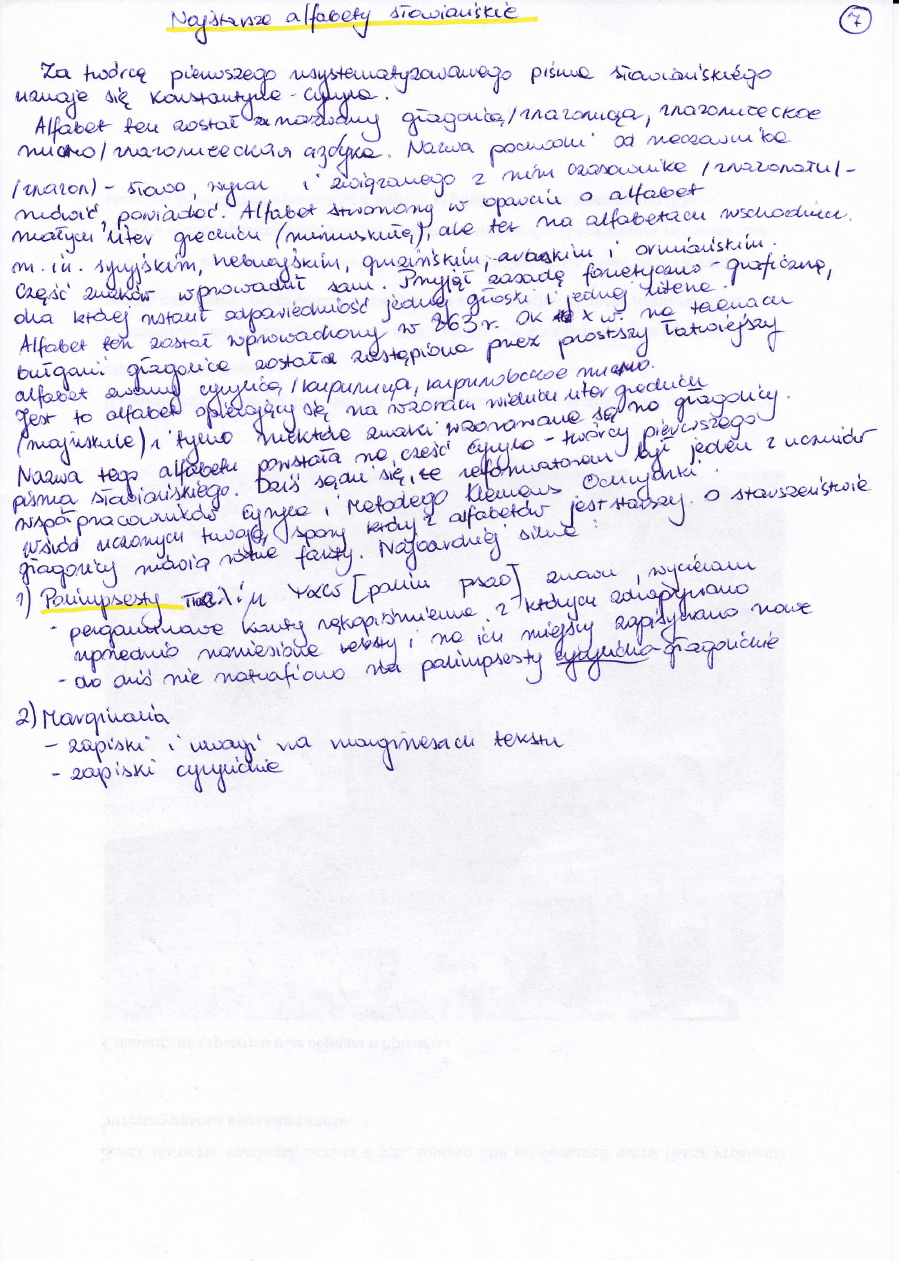 Najstarsze alfabety słowiańskie
7
Za twórcę pierwszego usystematyzowanego piśma słowiańskiego
uznaje się Konstantyna - Cyryla.
Alfabet ten został nazwany głagolicą /глаголица, глаголическое
письмо/глаголическая азбука. Nazwa pochodzi od rzeczownika
/глагол/ - słowo, wyraz i związanego z nim czasownika /глаголати/ -
mówić, powiadać. Alfabet stworzony w oparciu o alfabet
małych liter greckich (minuskułą), ale też na alfabetach wschodnich
m. in. syryjskim, hebrajskim, gruzińskim, arabskim i ormiańskim.
Część znaków wprowadził sam. Przyjął zasadę fonetyczno - graficzną,
dla której ustalił odpowiedniość jednej głoski i jednej literze.
Alfabet ten został wprowadzony w 863 r. Ok X w. na terenach
Bułgarii głagolica została zastąpiona przez prostszy łatwiejszy
alfabet zwany cyrylicą /кириллица, кирилловское письмо.
Jest to alfabet opierający się na wzorach wielkich liter greckich
(majuskule) i tylko niektóre znaki wzorowane są na głagolicy.
Nazwa tego alfabetu powstała na cześć Cyryla - twórcy pierwszego
piśma słowiańskiego. Dziś sądzi się, że reformatorem był jeden z uczniów
współpracowników Cyryla i Metodego Klemens Ochrydzki.
Wśród uczonych trwają spory który z alfabetów jest starszy. O starszeństwie
głagolicy mówią różne fakty. Najbardziej silne:
1) Palimpsesty παλίμ ψαω [palim psao] znaczy, wycieram
- pergaminowe karty rękopiśmienne z których zdrapywano
uprzednio naniesione teksty i na ich miejscu zapisywano nowe
- do dziś nie natrafiono na palimpsesty cyrylicko-głagolickie
2) Marginalia
- zapiski i uwagi na marginesach tekstu
- zapiski cyrylickie